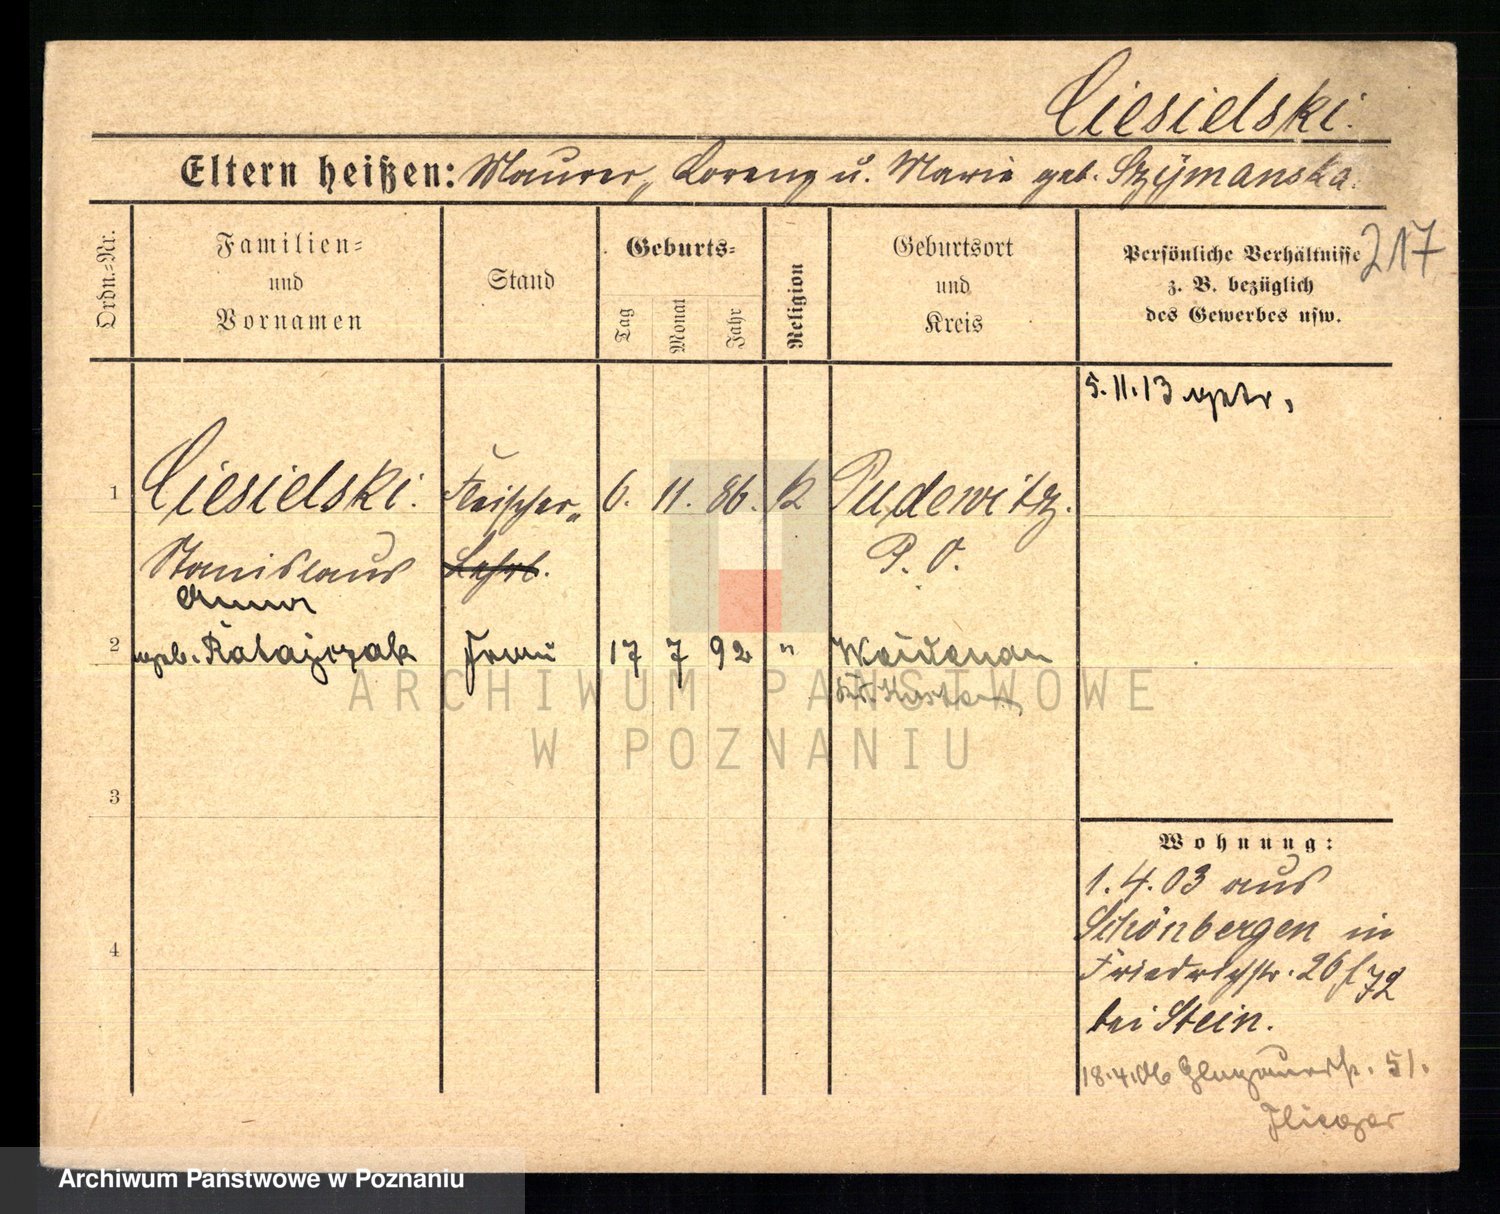 Ciesielski.
Eltern heißen: Maurer„ Lorenz u. Marie geb. Szymanska.
217
Ordn.-Nr.
Familien-
und
Vornamen
Stand
Geburts-
Tag
Monat
Jahr
Religion
Geburtsort
und
Kreis
Persönliche Verhältnisse
z. B. bezüglich
des Gewerbes usw.
5.11.13
1 Ciesielski. Fleischer„ 6. 11. 86. K Pudewitz.
Stanislaus Lehrl. P. O.
Anna
2 geb. Ratajczak Frau 17 7 92 " Weidenau
ARCHIWUM PAŃSTWOWE
W POZNANIU
3
4
Wohnung:
1.4.03 aus
Schönbergen in
Friedrichstr. 26 f 72
bei Stein.
18.4.06 Glogauerstr. 51.
Flieger
Archiwum Państwowe w Poznaniu